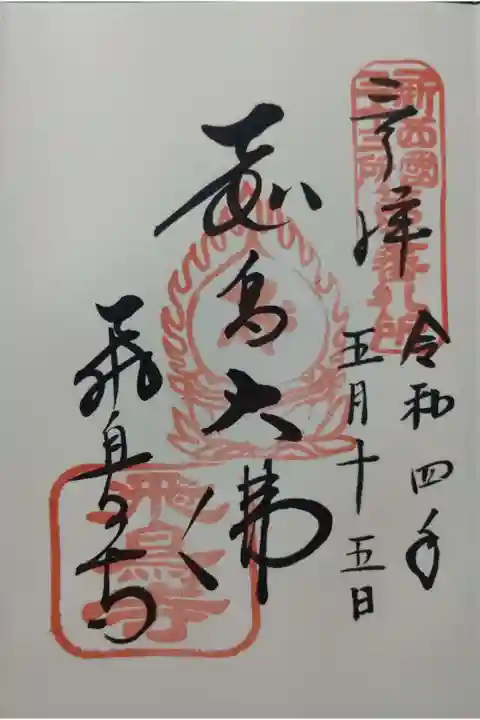 奉拝
令和四年
五月十五日
飛鳥大佛
飛鳥寺
新西國
三十三所第九番札所
飛鳥寺